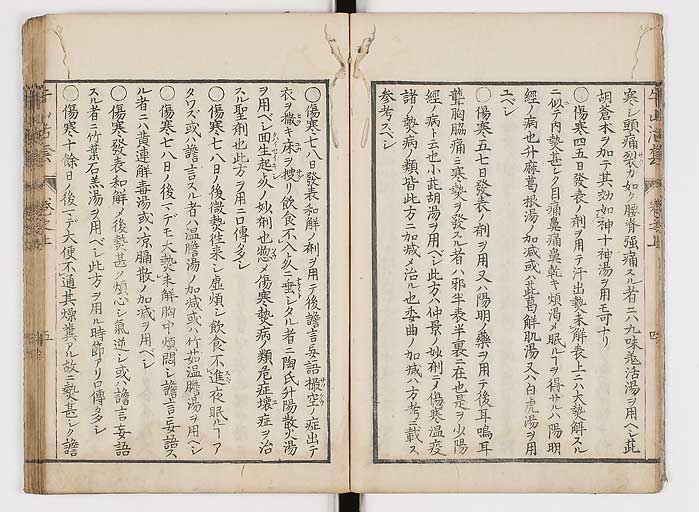 寒シ頭痛裂カ如ク腰脊強痛スル者ニハ九味羗活湯ヲ用ベシ此
胡蒼朮ヲ加テ其効如神十神湯ヲ用モ可ナリ
○傷寒四五日發表ノ剤ヲ用テ汗出熱未解表上ニハ大熱解スル
ニ似テ内熱甚シク目痛鼻痛鼻乾キ煩渇メ眠ルヿヲ得サルハ陽明
經ノ病也升麻葛根湯ノ加減或ハ柴葛解肌湯又ハ白虎湯ヲ用
ユベシ
○傷寒五七日發表ノ剤ヲ用又ハ陽明ノ藥ヲ用テ後耳鳴耳
聾胸脇痛ミ寒熱ヲ發スル者ハ邪半表半裏ニ在也是ヲ少陽
經ノ病ト云也小柴胡湯ヲ用ベシ此方ハ仲景ノ妙剤ニメ傷寒温疫
諸ノ熱病ノ類皆此方ニ加減メ治ル也委曲ノ加減ハ方考ニ載ス
参考スベシ
○傷寒七八日發表和解ノ剤ヲ用テ後譫言妄語撮空ノ症出テ
衣ヲ撒キ床ヲ捜リ飲食不入久ニ至シタル者ニ陶氏升陽散火湯
ヲ用ベシ回生起死ノ妙剤也惣メ傷寒熱病ノ類危症壊症ヲ治
スル聖剤也此方ヲ用ニ口傳多シ
○傷寒七八日ノ後微熱往来シ虚煩シ飲食不進夜眠ルヿア
タワズ或ハ譫言スル者ハ温膽湯ノ加減或ハ竹茹温膽湯ヲ用ベシ
○傷寒七八日ノ後マデモ大熱未解胸中煩悶シ譫言妄語ス
ル者ニハ黄連解毒湯或ハ凉膈散ノ加減ヲ用ベシ
○傷寒發表和解メ後熱甚ヲ煩心シ氣逆シ或ハ譫言妄語
スル者ニ竹葉石羔湯ヲ用ベシ此方ヲ用ル時節アリ口傳多シ
○傷寒十餘日ノ後マデ大便不通其燥糞アル故ニ熱甚シク譫